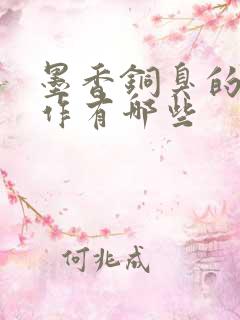 墨香銅臭的
作有哪些
何兆成